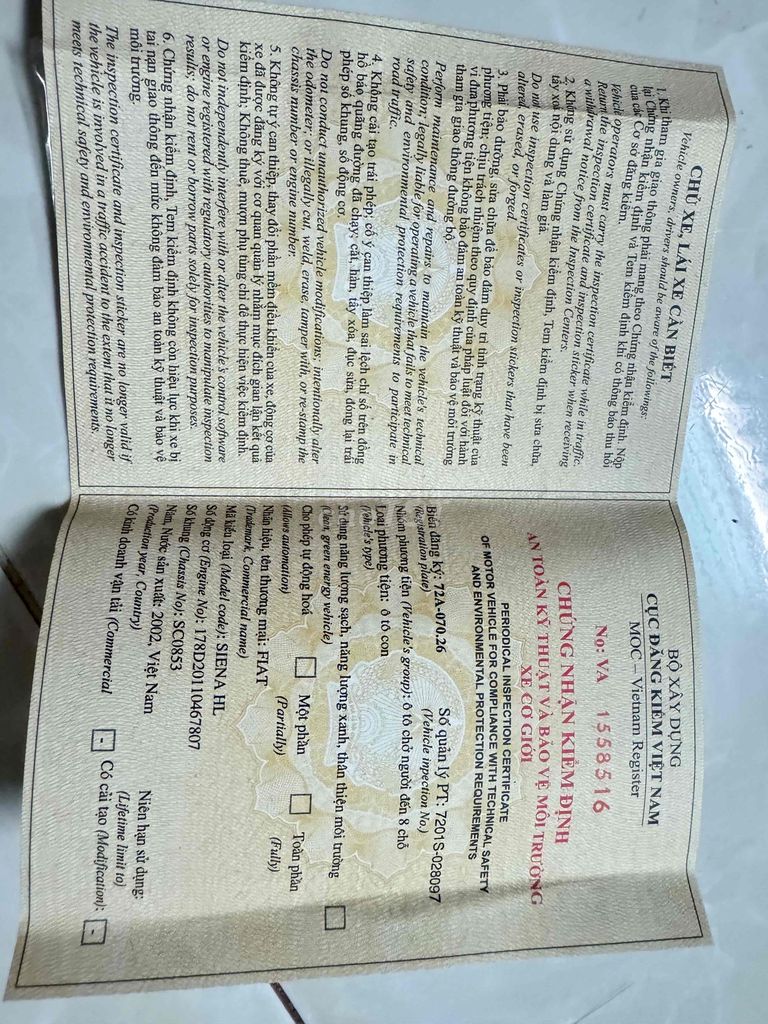 CHỦ XE, LÁI XE CẦN BIẾT
Vehicle owners, drivers should be aware of the followings:
1. Khi tham gia giao thông phải mang theo Chứng nhận kiểm định. Nộp
lại Chứng nhận kiểm định và Tem kiểm định khi có thông báo thu hồi
của các Cơ sở đăng kiểm.
Vehicle operators must carry the inspection certificate while in traffic.
Return the inspection certificate and inspection sticker when receiving
a withdrawal notice from the Inspection Centers.
2. Không sử dụng Chứng nhận kiểm định, Tem kiểm định bị sửa chữa,
tẩy xoá nội dung và làm giả.
Do not use inspection certificates or inspection stickers that have been
altered, erased, or forged.
3. Phải bảo dưỡng, sửa chữa để bảo đảm duy trì tình trạng kỹ thuật của
phương tiện; chịu trách nhiệm theo quy định của pháp luật đối với hành
vi đưa phương tiện không bảo đảm an toàn kỹ thuật và bảo vệ môi trường
tham gia giao thông đường bộ.
Perform maintenance and repairs to maintain the vehicle's technical
condition; legally liable for operating a vehicle that fails to meet technical
safety and environmental protection requirements to participate in
road traffic.
4. Không cải tạo trái phép; cố ý can thiệp làm sai lệch chỉ số trên đồng
hồ báo quãng đường đã chạy; cắt, hàn, tẩy xóa, đục sửa, đóng lại trái
phép số khung, số động cơ.
Do not conduct unauthorized vehicle modifications; intentionally alter
the odometer; or illegally cut, weld, erase, tamper with, or re-stamp the
chassis number or engine number.
5. Không tự ý can thiệp, thay đổi phần mềm điều khiển của xe, động cơ của
xe đã được đăng ký với cơ quan quản lý nhằm mục đích gian lận kết quả
kiểm định; Không thuê, mượn phụ tùng chỉ để thực hiện việc kiểm định.
Do not independently interfere with or alter the vehicle's control software
or engine registered with regulatory authorities to manipulate inspection
results; do not rent or borrow parts solely for inspection purposes.
6. Chứng nhận kiểm định, Tem kiểm định không còn hiệu lực khi xe bị
tai nạn giao thông đến mức không đảm bảo an toàn kỹ thuật và bảo vệ
môi trường.
The inspection certificate and inspection sticker are no longer valid if
the vehicle is involved in a traffic accident to the extent that it no longer
meets technical safety and environmental protection requirements.
BỘ XÂY DỰNG
CỤC ĐĂNG KIỂM VIỆT NAM
MOC – Vietnam Register
No: VA 1558516
CHỨNG NHẬN KIỂM ĐỊNH
AN TOÀN KỸ THUẬT VÀ BẢO VỆ MÔI TRƯỜNG
XE CƠ GIỚI
PERIODICAL INSPECTION CERTIFICATE
OF MOTOR VEHICLE FOR COMPLIANCE WITH TECHNICAL SAFETY
AND ENVIRONMENTAL PROTECTION REQUIREMENTS
Biển đăng ký: 72A-070.26 Số quản lý PT: 7201S-028097
(Registration plate) (Vehicle inpection No.)
Nhóm phương tiện (Vehicle's group): ô tô chở người đến 8 chỗ
Loại phương tiện: ô tô con
(Vehicle's type)
Sử dụng năng lượng sạch, năng lượng xanh, thân thiện môi trường
(Clean, green energy vehicle)
Cho phép tự động hoá Một phần Toàn phần
(Allows automation) (Partially) (Fully)
Nhãn hiệu, tên thương mại: FIAT
(Trademark, Commercial name)
Mã kiểu loại (Model code): SIENA HL
Số động cơ (Engine No): 178D20110467807
Số khung (Chassis No): SC0853
Năm, Nước sản xuất: 2002, Việt Nam Niên hạn sử dụng:
(Production year, Country) (Lifetime limit to)
Có kinh doanh vận tải (Commercial - Có cải tạo (Modification): -